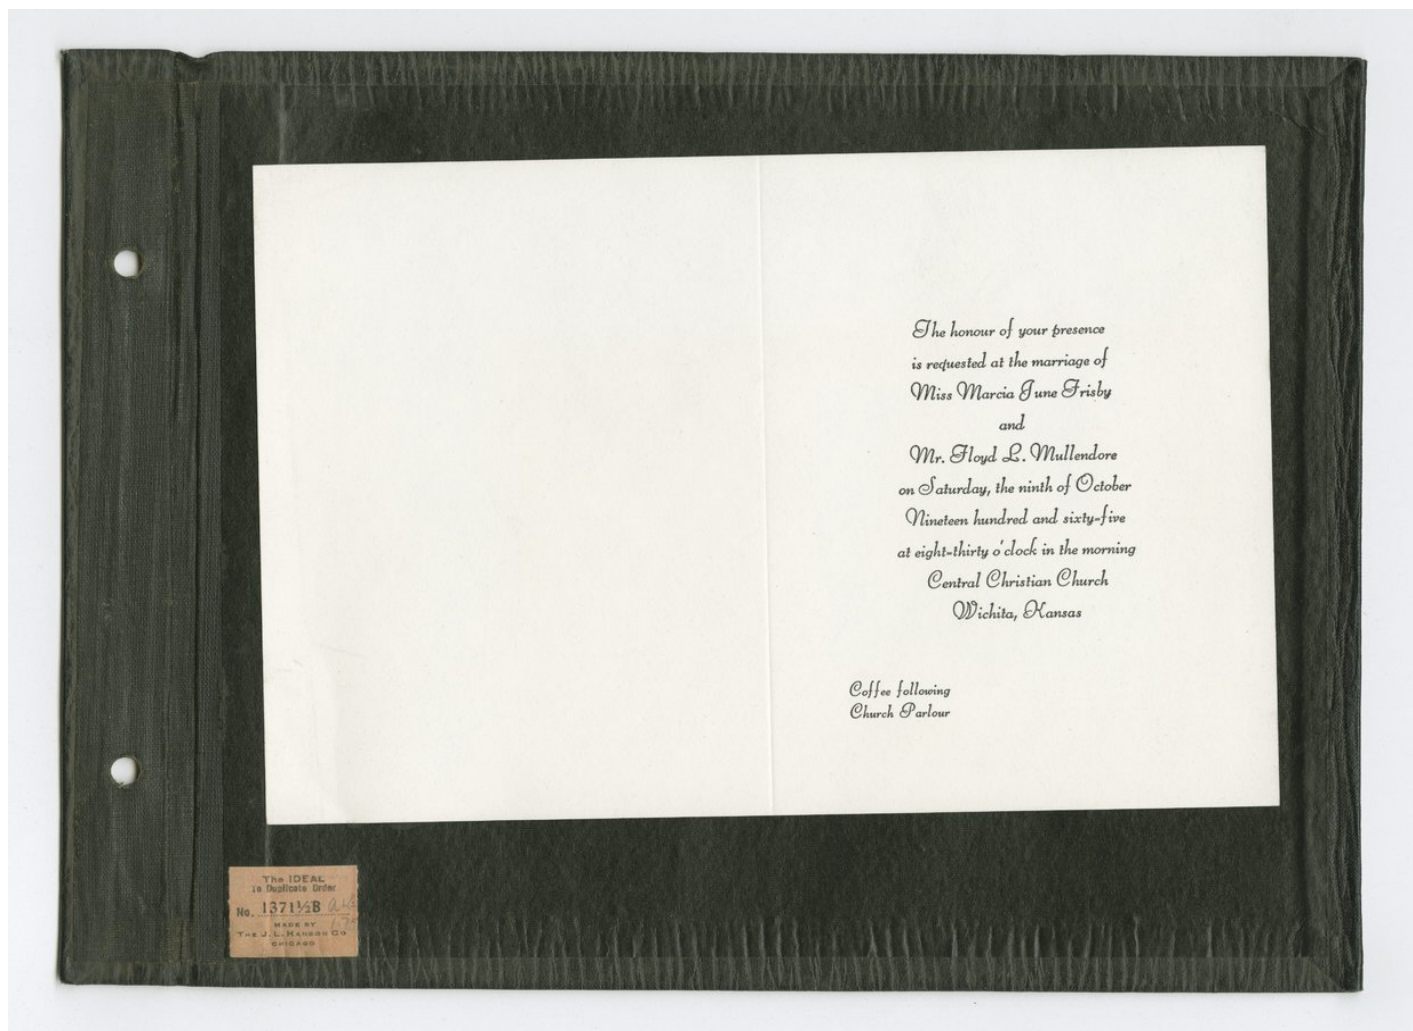 The honour of your presence
is requested at the marriage of
Miss Marcia June Frisby
and
Mr. Floyd L. Mullendore
on Saturday, the ninth of October
Nineteen hundred and sixty-five
at eight-thirty o'clock in the morning
Central Christian Church
Wichita, Kansas
Coffee following
Church Parlour
The IDEAL
To Duplicate Order
No. 1371½B
MADE BY
THE J. L. HANSON CO
CHICAGO